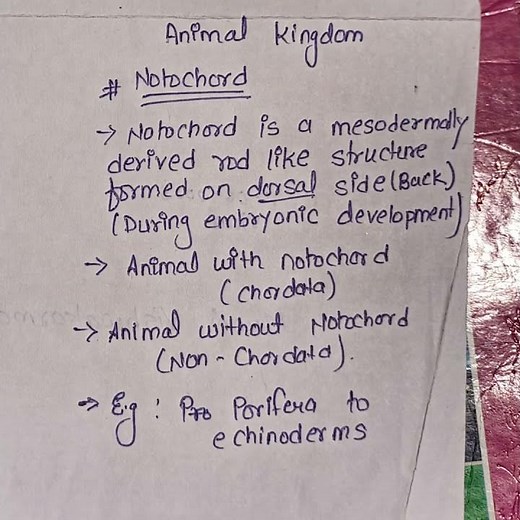 Animal Kingdom
# Notochord
→ Notochord is a mesodermally
derived rod like structure
formed on dorsal side (Back)
(During embryonic development)
→ Animal with notochord
(Chordata)
→ Animal without Notochord
(Non - Chordata).
⇒ E.g : Porifera to
echinoderms